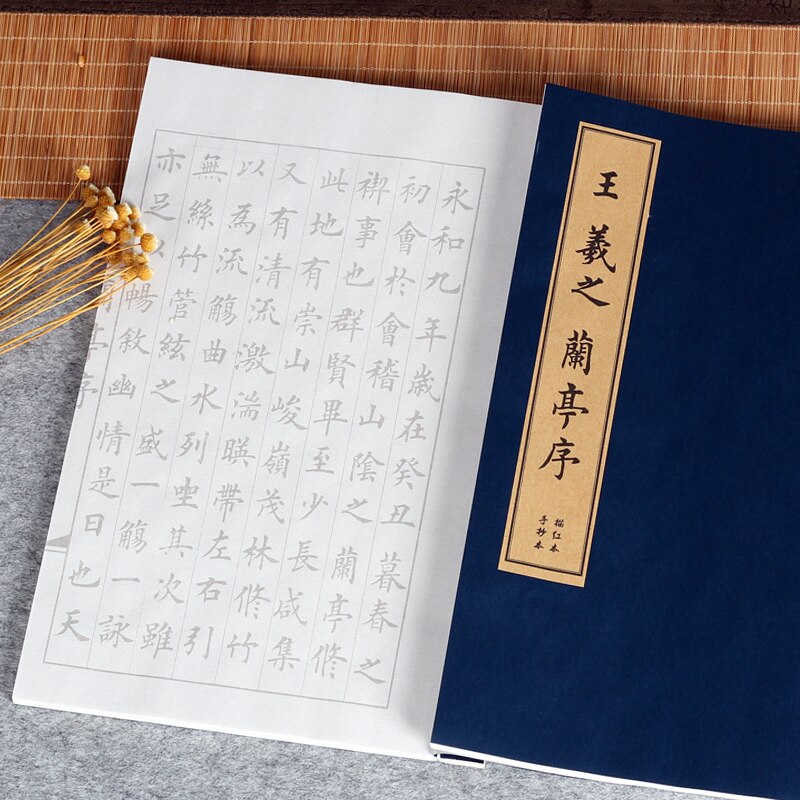 永和九年歲在癸丑暮春之
初會於會稽山陰之蘭亭脩
禊事也群賢畢至少長咸集
此地有崇山峻嶺茂林脩竹
又有清流激湍暎帶左右引
以為流觴曲水列坐其次雖
無絲竹管絃之盛一觴一詠
亦足以暢敘幽情是日也天
亭序
王羲之 蘭亭序
描红本
手抄本